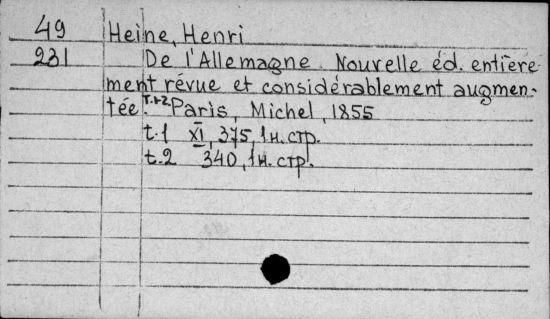 49 Heine, Henri
231 De l'Allemagne. Nouvelle éd. entière-
ment révue et considérablement augmen-
tée. T.1-2 Paris, Michel, 1855
t.1 XI, 375, 1н. стр.
t.2 340, 1н. стр.